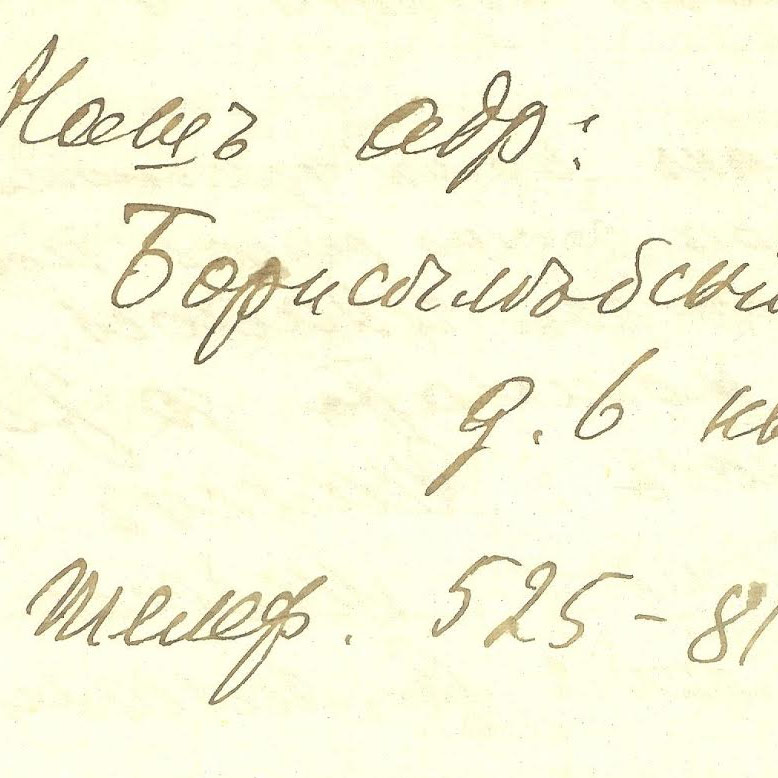 Нашъ адр:
Борисоглѣбскій
д. 6 кв
Телеф. 525-81